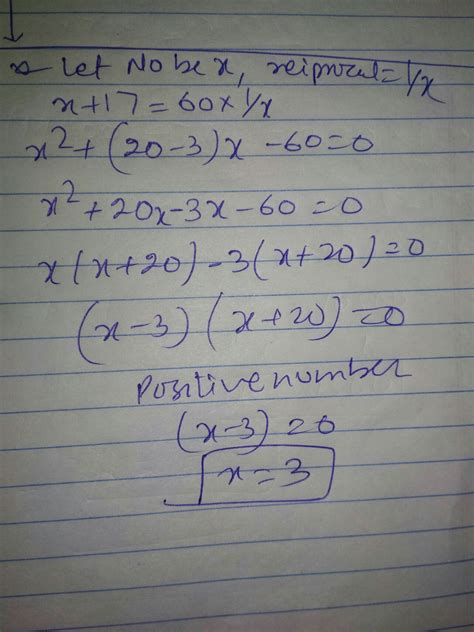 Let No be x, reiprocal = 1/x
x+17 = 60 x 1/x
x²+(20-3)x -60=0
x²+20x-3x-60=0
x(x+20)-3(x+20)=0
(x-3)(x+20)=0
Positive number
(x-3)=0
x=3